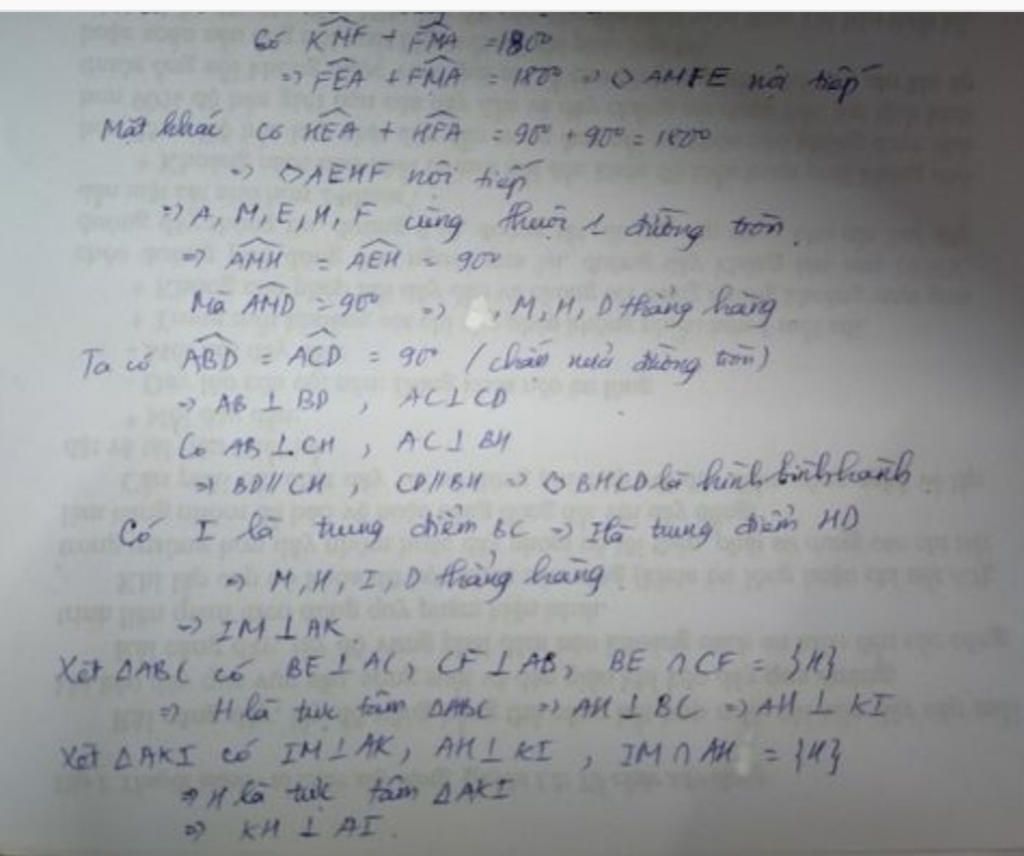 Có KMF + FMA = 180°
=> FEA + FMA = 180° => ◇ AMFE nội tiếp
Mặt khác có HEA + HFA = 90° + 90° = 180°
=> ◇ AEHF nội tiếp
=> A, M, E, H, F cùng thuộc 1 đường tròn.
=> AMH = AEH = 90°
Mà AMD = 90° => , M, H, D thẳng hàng
Ta có ABD = ACD = 90° (chắn nửa đường tròn)
=> AB ⊥ BD , AC ⊥ CD
Có AB ⊥ CH , AC ⊥ BH
=> BD // CH , CD // BH => ◇ BHCD là hình bình hành.
Có I là trung điểm BC => I là trung điểm HD
=> M, H, I, D thẳng hàng.
=> IM ⊥ AK
Xét ΔABC có BE ⊥ AC, CF ⊥ AB, BE ∩ CF = {H}
=> H là trực tâm ΔABC => AH ⊥ BC => AH ⊥ KI
Xét ΔAKI có IM ⊥ AK, AH ⊥ KI , IM ∩ AH = {H}
=> H là trực tâm ΔAKI
=> KH ⊥ AI.